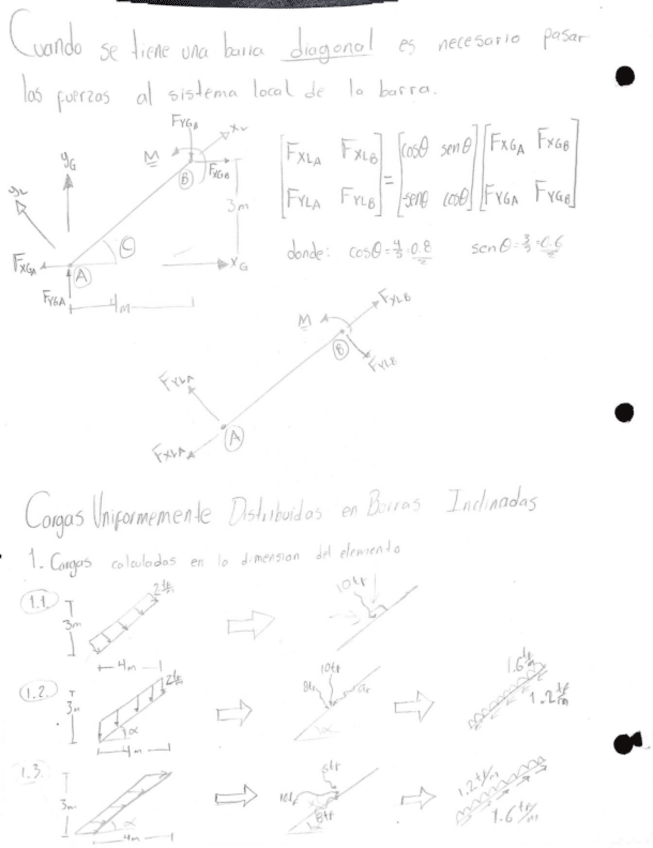 Cuando se tiene una barra diagonal es necesario pasar
las fuerzas al sistema local de la barra.
FYGA
XL
M
yG
yL
B
FXGB
3m
C
FXGA
A
XG
FYGA
4m
FXLA FXLB
FYLA FYLB
=
cosθ senθ
senθ cosθ
FXGA FXGB
FYGA FYGB
donde: cosθ=4/5=0.8 senθ=3/5=0.6
FXLB
M
B
FYLB
FYLA
A
FXLA
Cargas Uniformemente Distribuidas en Barras Inclinadas
1. Cargas calculadas en la dimension del elemento
1.1.
3m
2 tf/m
4m
10tf
1.2.
3m
2 tf/m
α
4m
10tf
8tf
α
1.6 tf/m
1.2 tf/m
1.3.
3m
α
4m
6tf
10tf
8tf
α
1.2 tf/m
1.6 tf/m